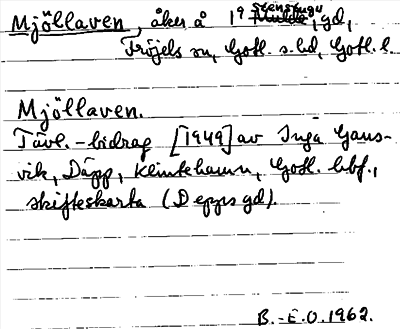 Mjöllaven, åker å 19 Stenstugu, gd,
Fröjels sn, Gotl. s. hd, Gotl. l.
Mjöllaven.
Tävl.-bidrag [1949] av Inga Gans-
vik, Däpp, Klintehamn, Gotl. hbf.,
skifteskarta (Depps gd).
B.-E.O. 1962.